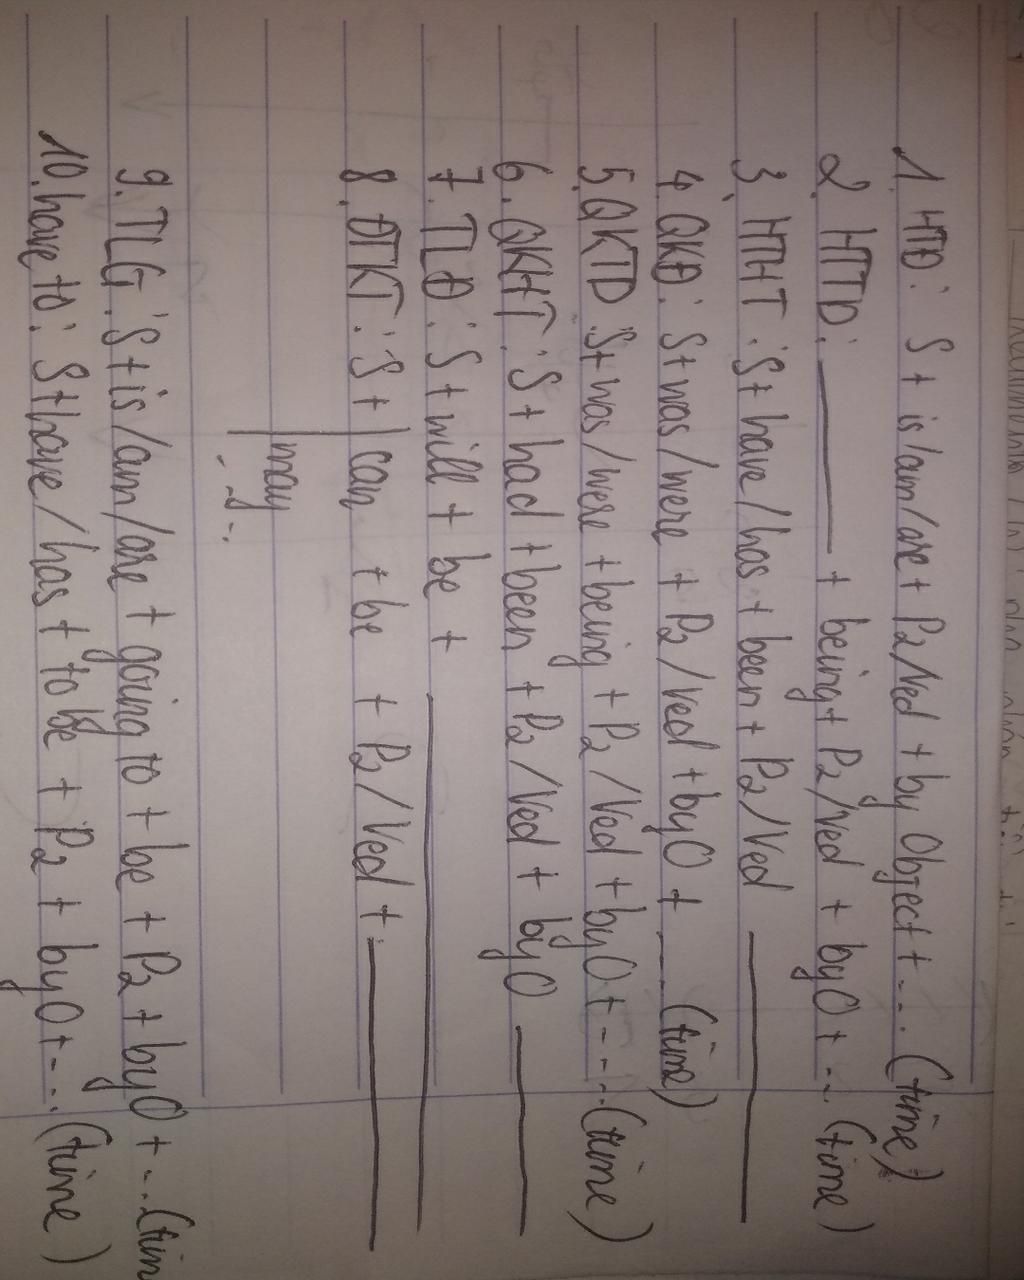 1. HTĐ: S + is/am/are + P2/Ved + by Object + ... (time)
2. HTTD: ______ + being + P2/Ved + by O + ... (time)
3. HTHT: S + have/has + been + P2/Ved ______
4. QKĐ: S + was/were + P2/Ved + by O + .... (time)
5. QKTD: S + was/were + being + P2/Ved + by O + .... (time)
6. QKHT: S + had + been + P2/Ved + by O ______
7. TLĐ: S + will + be + ______
8. ĐTKT: S + | can + be + P2/Ved + ______
may
...
9. TLG: S + is/am/are + going to + be + P2 + by O + ... (tim
10. have to: S + have/has + to be + P2 + by O + ... (time)